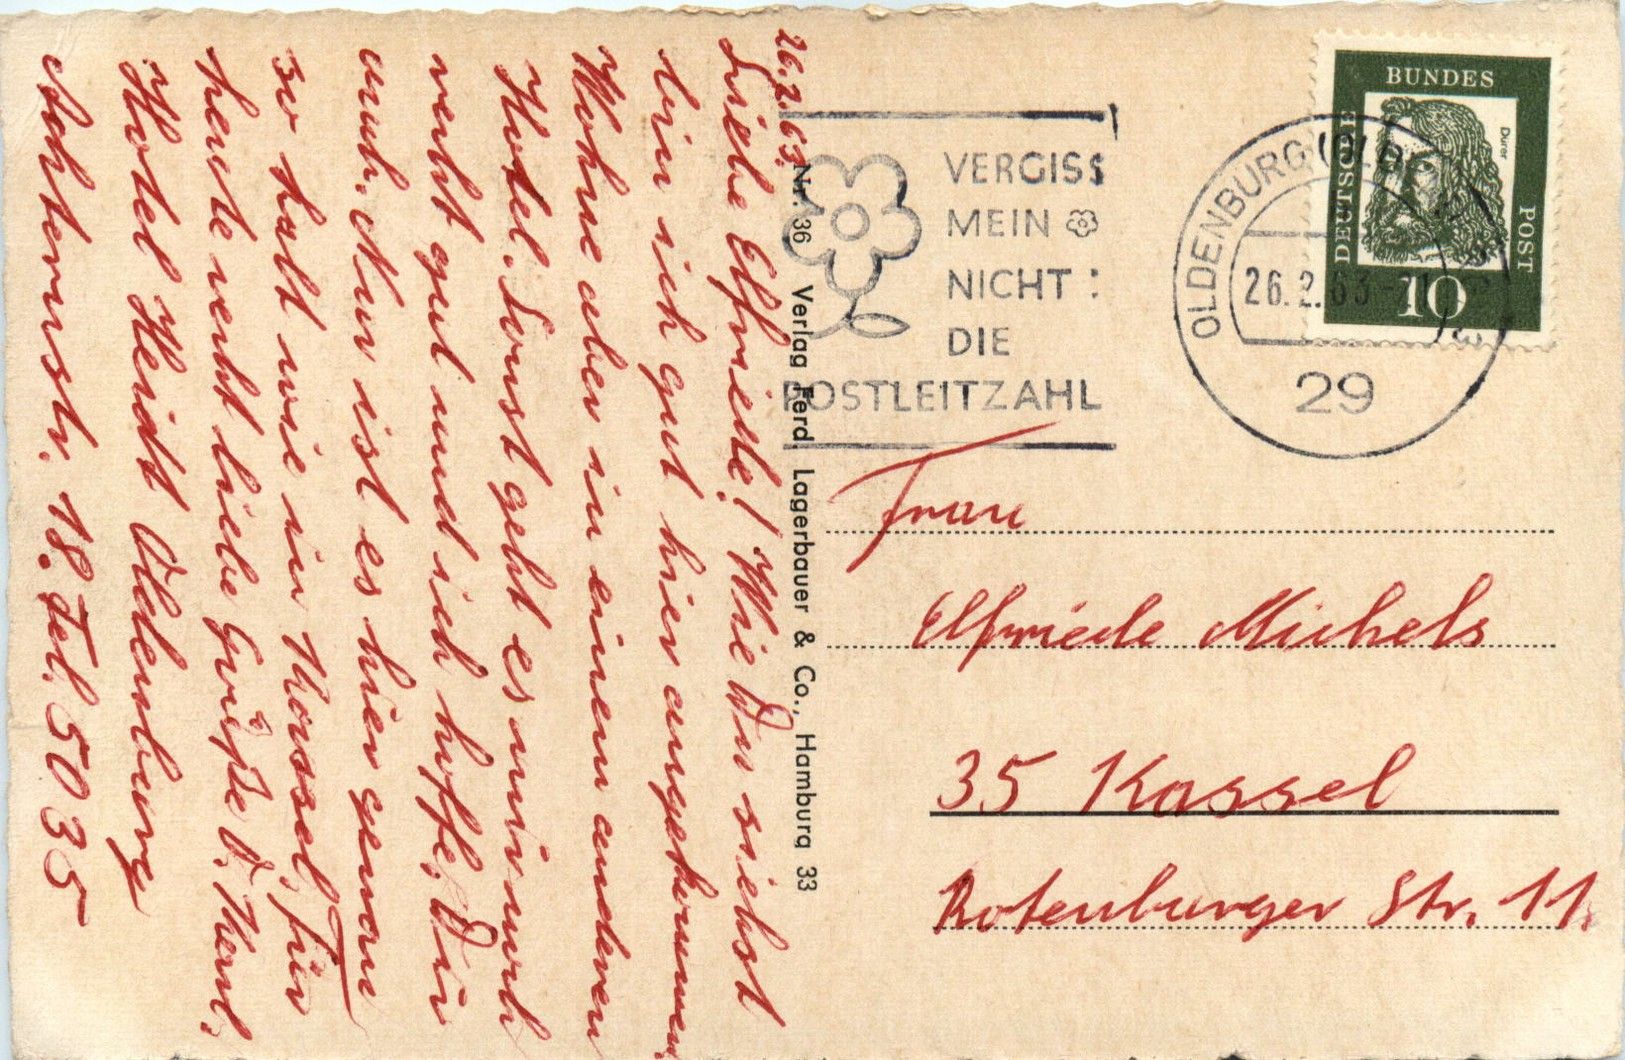 26.2.63.
Liebe Elfriede! Wie Du siehst
bin ich gut hier angekommen
Wohne aber in einem anderen
Hotel. Sonst geht es mir noch
recht gut und ich hoffe, Dir
auch. Nun ist es hier genau
so kalt wie in Kassel, Für
heute recht liebe Grüße D. Karl.
Hotel Heidt Oldenburg
Achternstr. 18. Tel. 5035
Nr. 36 Verlag Ferd. Lagerbauer & Co., Hamburg 33
VERGISS
MEIN
NICHT :
DIE
POSTLEITZAHL
OLDENBURG (OLDB)
26.2.63-21
29
DEUTSCHE BUNDES POST
Dürer
10
Frau
Elfriede Michels
35 Kassel
Rotenburger Str. 11.